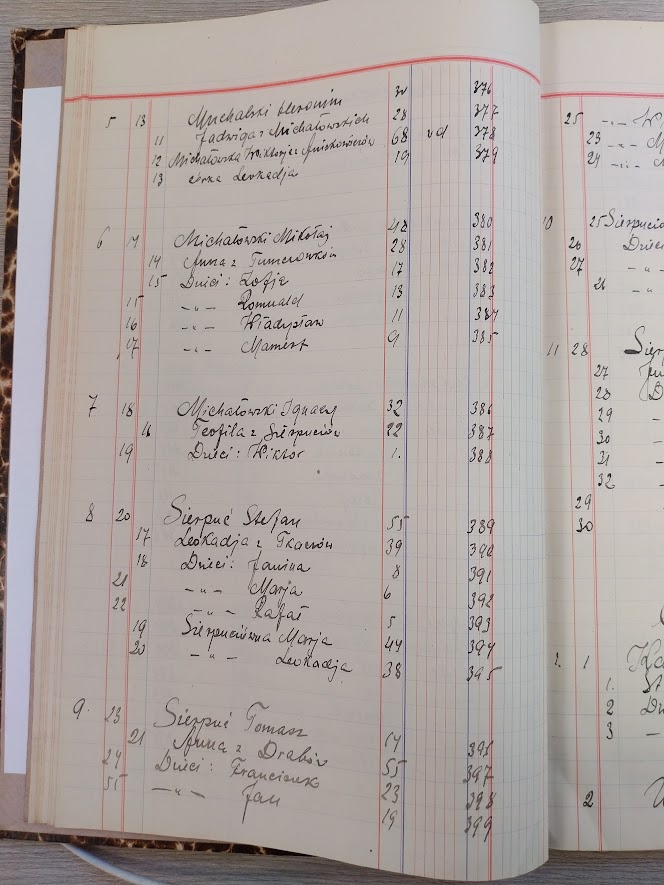 5 13 Michalski Hieronim 30 376
11 Jadwiga z Michałowskich 28 377
12 Michałowska Wiktorja z 68 wd 378
13 córka Leokadja 19 379
6 14 Michałowski Mikołaj 42 380
14 Anna z 28 381
15 Dzieci: Zofja 17 382
15 -"- Romuald 13 383
16 -"- Władysław 11 384
17 -"- Mamert 9 385
7 18 Michałowski Ignacy 32 386
16 Teofila z Sierpuciów 22 387
19 Dzieci: Wiktor 1. 388
8 20 Sierpuć Stefan 55 389
17 Leokadja z Tkaczów 39 390
18 Dzieci: Janina 8 391
21 -"- Marja 6 392
22 -"- Rafał 5 393
19 Sierpuciówna Marja 44 394
20 -"- Leokadja 38 395
9. 23 Sierpuć Tomasz 395
21 Anna z Drabów 55 397
24 Dzieci: Franciszek 23 398
55 -"- Jan 19 399
25 -"-
23 -"- M
24 -"- M
10 25 Sierpuć
26 Dzieci
27 -"-
26 -"-
11 28
27
28
29
30
31
32
29
30
1
1. St
2
3 -
2